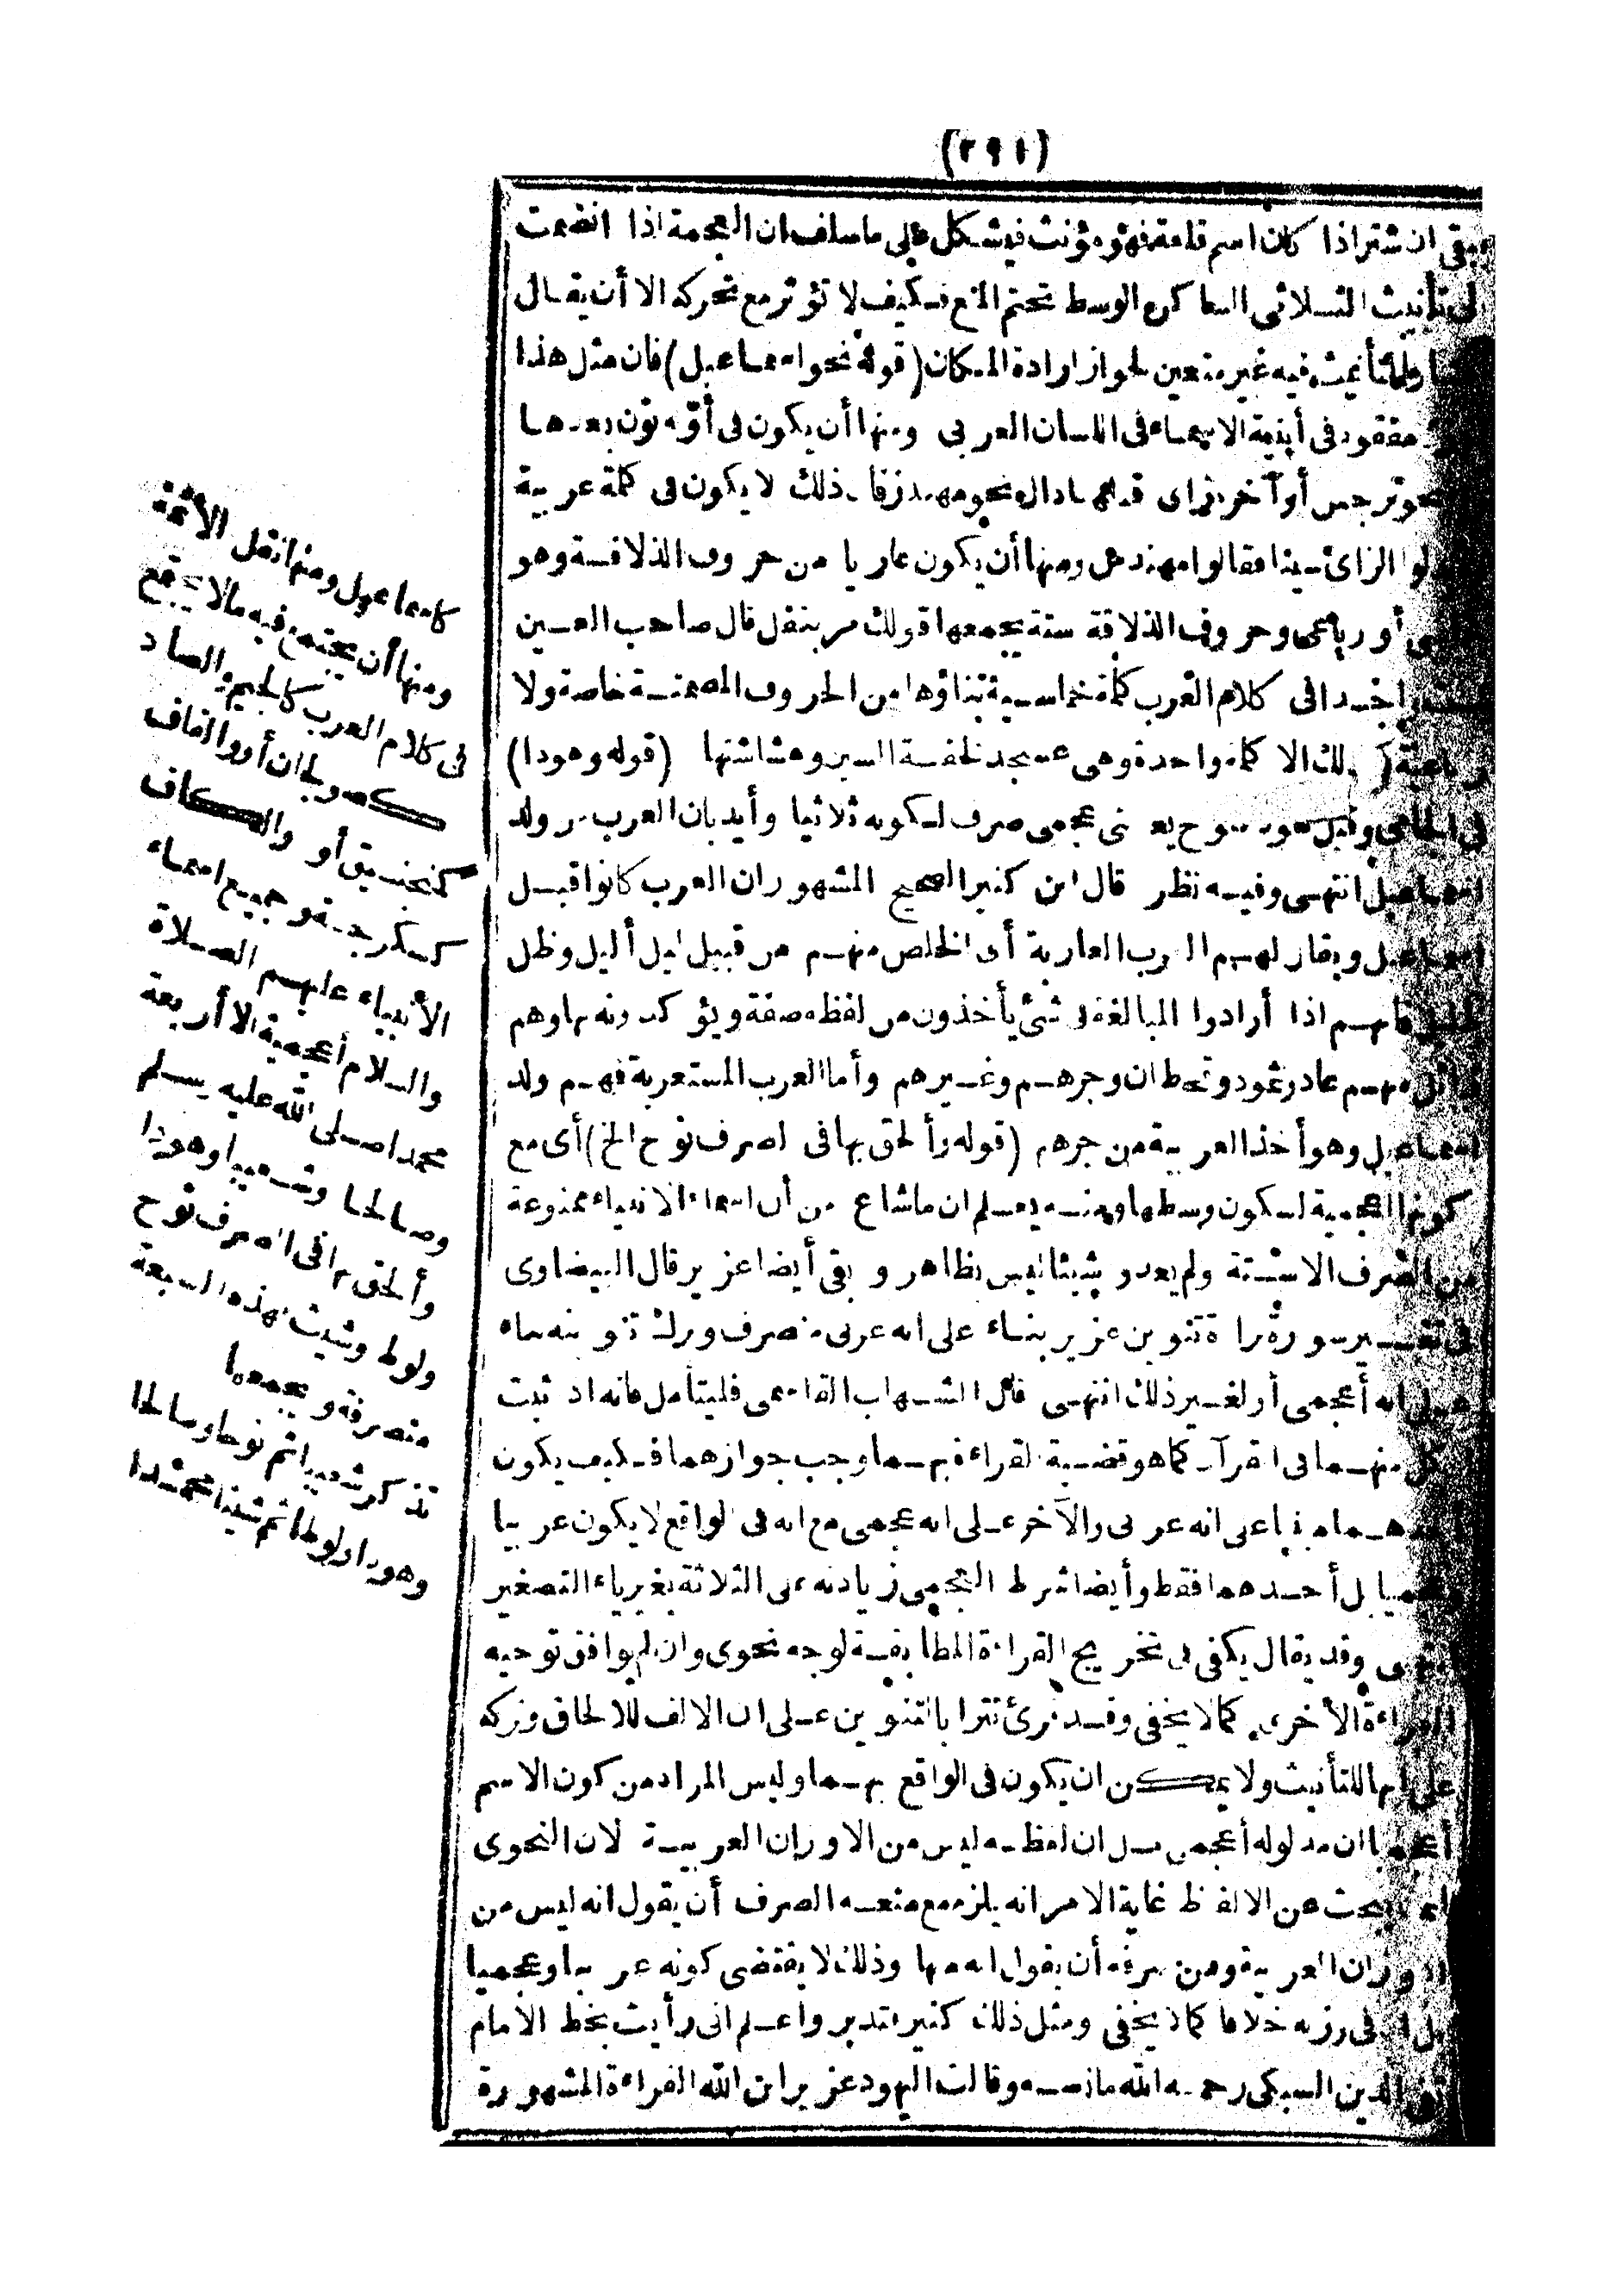 (٢٩١)
بقى ان شتراذا كان اسم قلعة فهو مؤنث فيشكل على ما سلف ان العجمة اذا انضمت
لى تأنيث الثلاثى الساكن الوسط تحتم المنع فكيف لا تؤثر مع تحركه الا أن يقال
التأنيث فيه غير متعين لجواز ارادة المكان (قوله نحو اسماعيل) فان مثل هذا
مفقود فى أبنية الاسماء فى اللسان العربى ومنها أن يكون فى أوله نون بعدها
نحو نرجس أو آخره زاى قبلها دال نحو مهندز فان ذلك لا يكون فى كلمة عربية
الزاى سينا فقالوا مهندس ومنها أن يكون عاريا من حروف الذلاقة وهو
أو رباعى وحروف الذلاقة ستة يجمعها قولك مر بنفل قال صاحب العين
فى كلام العرب كلمة خماسية بناؤها من الحروف المصمتة خاصة ولا
رباعية كذلك الا كلمة واحدة وهى عسجد لخفة السين وهشاشتها (قوله وهودا)
فى الجامى وقيل هود كنوح يعنى عجمى صرف لكونه ثلاثيا وأيد بان العرب من ولد
اسماعيل انتهى وفيه نظر قال ابن كثير الصحيح المشهور ان العرب كانوا قبل
اسماعيل ويقال لهم العرب العاربة أى الخلص منهم من قبيل ليل أليل وظل
ظليل فانهم اذا أرادوا المبالغة فى شئ يأخذون من لفظه صفة ويؤكدونه بها وهم
قبائل منهم عاد وثمود وقحطان وجرهم وغيرهم وأما العرب المستعربة فهم ولد
اسماعيل وهو أخذ العربية من جرهم (قوله وألحق بها فى الصرف نوح الخ) أى مع
كونها أعجمية لسكون وسطها ومنه يعلم ان ما شاع من أن اسماء الانبياء ممنوعة
من الصرف الا ستة ولم يعدو شيثا ليس بظاهر وبقى أيضا عزير قال البيضاوى
فى تفسير سورة براءة تنوين عزير بناء على انه عربى منصرف وترك تنوينه بناء
على انه أعجمى أو لغير ذلك انتهى قال الشهاب القاسمى فليتأمل فانه اذ ثبت
كل منهما فى القرآن كما هو قضية القراءة بهما وجب جوازهما فكيف يكون
أحدهما مبنيا على انه عربى والآخر على انه عجمى مع انه فى الواقع لا يكون عربيا
وعجميا بل أحدهما فقط وأيضا شرط العجمى زيادته على الثلاثة بغير ياء التصغير
انتهى وقد يقال يكفى فى تخريج القراءة المطابقة لوجه نحوى وان لم يوافق توجيه
القراءة الأخرى كما لا يخفى وقد قرئ تترا بالتنوين على ان الالف للالحاق وتركه
على انها للتأنيث ولا يمكن ان يكون فى الواقع بهما وليس المراد من كون الاسم
أعجميا ان مدلوله أعجمى بل ان لفظه ليس من الاوزان العربية لان النحوى
انما يبحث عن الالفاظ غاية الامر انه يلزم مع منعه الصرف أن يقول انه ليس من
الاوزان العربية ومن صرفه أن يقول انه منها وذلك لا يقتضى كونه عربيا وعجميا
بل ان فى وزنه خلافا كما لا يخفى ومثل ذلك كثير فتدبر واعلم انى رأيت بخط الامام
تقى الدين السبكى رحمه الله ما نصه وقالت اليهود عزير ابن الله القراءة المشهورة
كاسماعيل ومنها نقل الأئمة
ومنها أن يجتمع فيه ما لا يجتمع
فى كلام العرب كالجيم والصاد
كصولجان أو والقاف
كمنجنيق أو والكاف
كسكرجة وجميع اسماء
الأنبياء عليهم الصلاة
والسلام أعجمية الا أربعة
محمدا صلى الله عليه وسلم
وصالحا وشعيبا وهودا
وألحق بها فى الصرف نوح
ولوط وشيث فهذه السبعة
منصرفة ويجمعها
تذكر شعيبا ثم نوحا وصالحا
وهودا ولوطا ثم شيثا محمدا